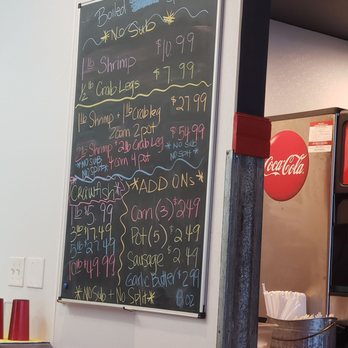 Boiled
*No Sub*
1 lb Shrimp $10.99
1/2 lb Crab Legs $7.99
1 lb Shrimp + 1 lb Crab leg $27.99
2 corn 2 pot
Shrimp + 2 lb Crab Leg $54.99
4 corn 4 pot
*No Sub No Split*
*No Sub No Split*
Crawfish
1 lb $5.99
3 lb $17.49
5 lb $27.49
10 lb $49.99
*ADD ONs*
Corn (3) $2.49
Pot (5) $2.49
Sausage $2.49
Garlic Butter $2.99
8 oz
*No Sub + No Split*
Coca-Cola